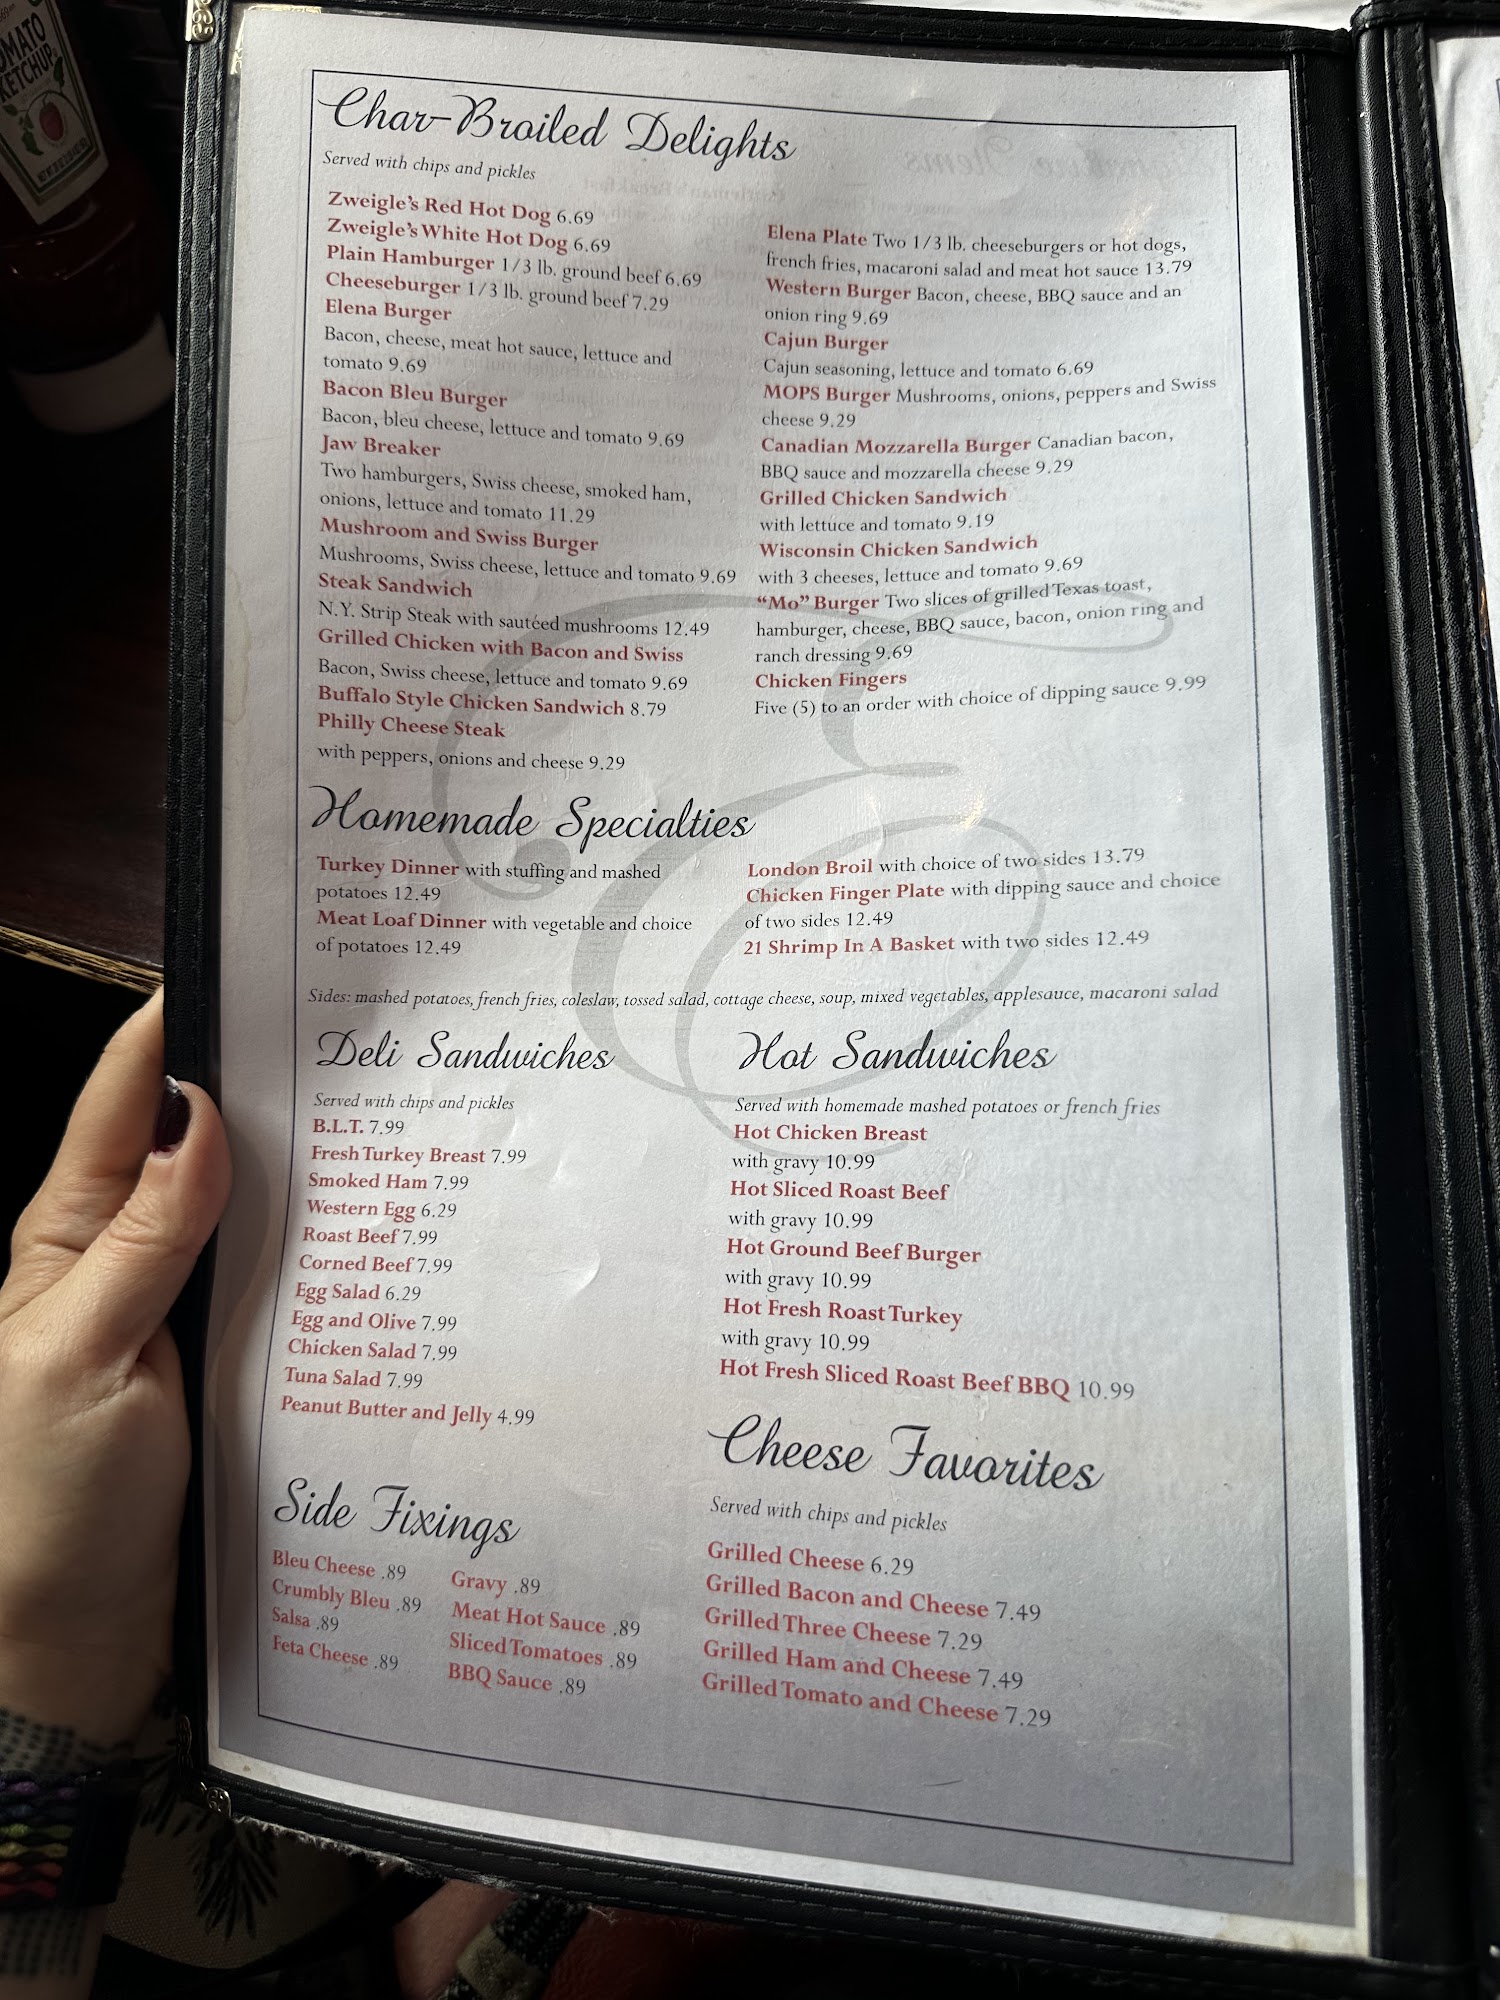 TOMATO
KETCHUP
Char-Broiled Delights
Served with chips and pickles
Zweigle's Red Hot Dog 6.69
Zweigle's White Hot Dog 6.69
Plain Hamburger 1/3 lb. ground beef 6.69
Cheeseburger 1/3 lb. ground beef 7.29
Elena Burger
Bacon, cheese, meat hot sauce, lettuce and
tomato 9.69
Bacon Bleu Burger
Bacon, bleu cheese, lettuce and tomato 9.69
Jaw Breaker
Two hamburgers, Swiss cheese, smoked ham,
onions, lettuce and tomato 11.29
Mushroom and Swiss Burger
Mushrooms, Swiss cheese, lettuce and tomato 9.69
Steak Sandwich
N.Y. Strip Steak with sautéed mushrooms 12.49
Grilled Chicken with Bacon and Swiss
Bacon, Swiss cheese, lettuce and tomato 9.69
Buffalo Style Chicken Sandwich 8.79
Philly Cheese Steak
with peppers, onions and cheese 9.29
Elena Plate Two 1/3 lb. cheeseburgers or hot dogs,
french fries, macaroni salad and meat hot sauce 13.79
Western Burger Bacon, cheese, BBQ sauce and an
onion ring 9.69
Cajun Burger
Cajun seasoning, lettuce and tomato 6.69
MOPS Burger Mushrooms, onions, peppers and Swiss
cheese 9.29
Canadian Mozzarella Burger Canadian bacon,
BBQ sauce and mozzarella cheese 9.29
Grilled Chicken Sandwich
with lettuce and tomato 9.19
Wisconsin Chicken Sandwich
with 3 cheeses, lettuce and tomato 9.69
"Mo" Burger Two slices of grilled Texas toast,
hamburger, cheese, BBQ sauce, bacon, onion ring and
ranch dressing 9.69
Chicken Fingers
Five (5) to an order with choice of dipping sauce 9.99
Homemade Specialties
Turkey Dinner with stuffing and mashed
potatoes 12.49
Meat Loaf Dinner with vegetable and choice
of potatoes 12.49
London Broil with choice of two sides 13.79
Chicken Finger Plate with dipping sauce and choice
of two sides 12.49
21 Shrimp In A Basket with two sides 12.49
Sides: mashed potatoes, french fries, coleslaw, tossed salad, cottage cheese, soup, mixed vegetables, applesauce, macaroni salad
Deli Sandwiches
Served with chips and pickles
B.L.T. 7.99
Fresh Turkey Breast 7.99
Smoked Ham 7.99
Western Egg 6.29
Roast Beef 7.99
Corned Beef 7.99
Egg Salad 6.29
Egg and Olive 7.99
Chicken Salad 7.99
Tuna Salad 7.99
Peanut Butter and Jelly 4.99
Hot Sandwiches
Served with homemade mashed potatoes or french fries
Hot Chicken Breast
with gravy 10.99
Hot Sliced Roast Beef
with gravy 10.99
Hot Ground Beef Burger
with gravy 10.99
Hot Fresh Roast Turkey
with gravy 10.99
Hot Fresh Sliced Roast Beef BBQ 10.99
Side Fixings
Bleu Cheese .89
Crumbly Bleu .89
Salsa .89
Feta Cheese .89
Gravy .89
Meat Hot Sauce .89
Sliced Tomatoes .89
BBQ Sauce .89
Cheese Favorites
Served with chips and pickles
Grilled Cheese 6.29
Grilled Bacon and Cheese 7.49
Grilled Three Cheese 7.29
Grilled Ham and Cheese 7.49
Grilled Tomato and Cheese 7.29